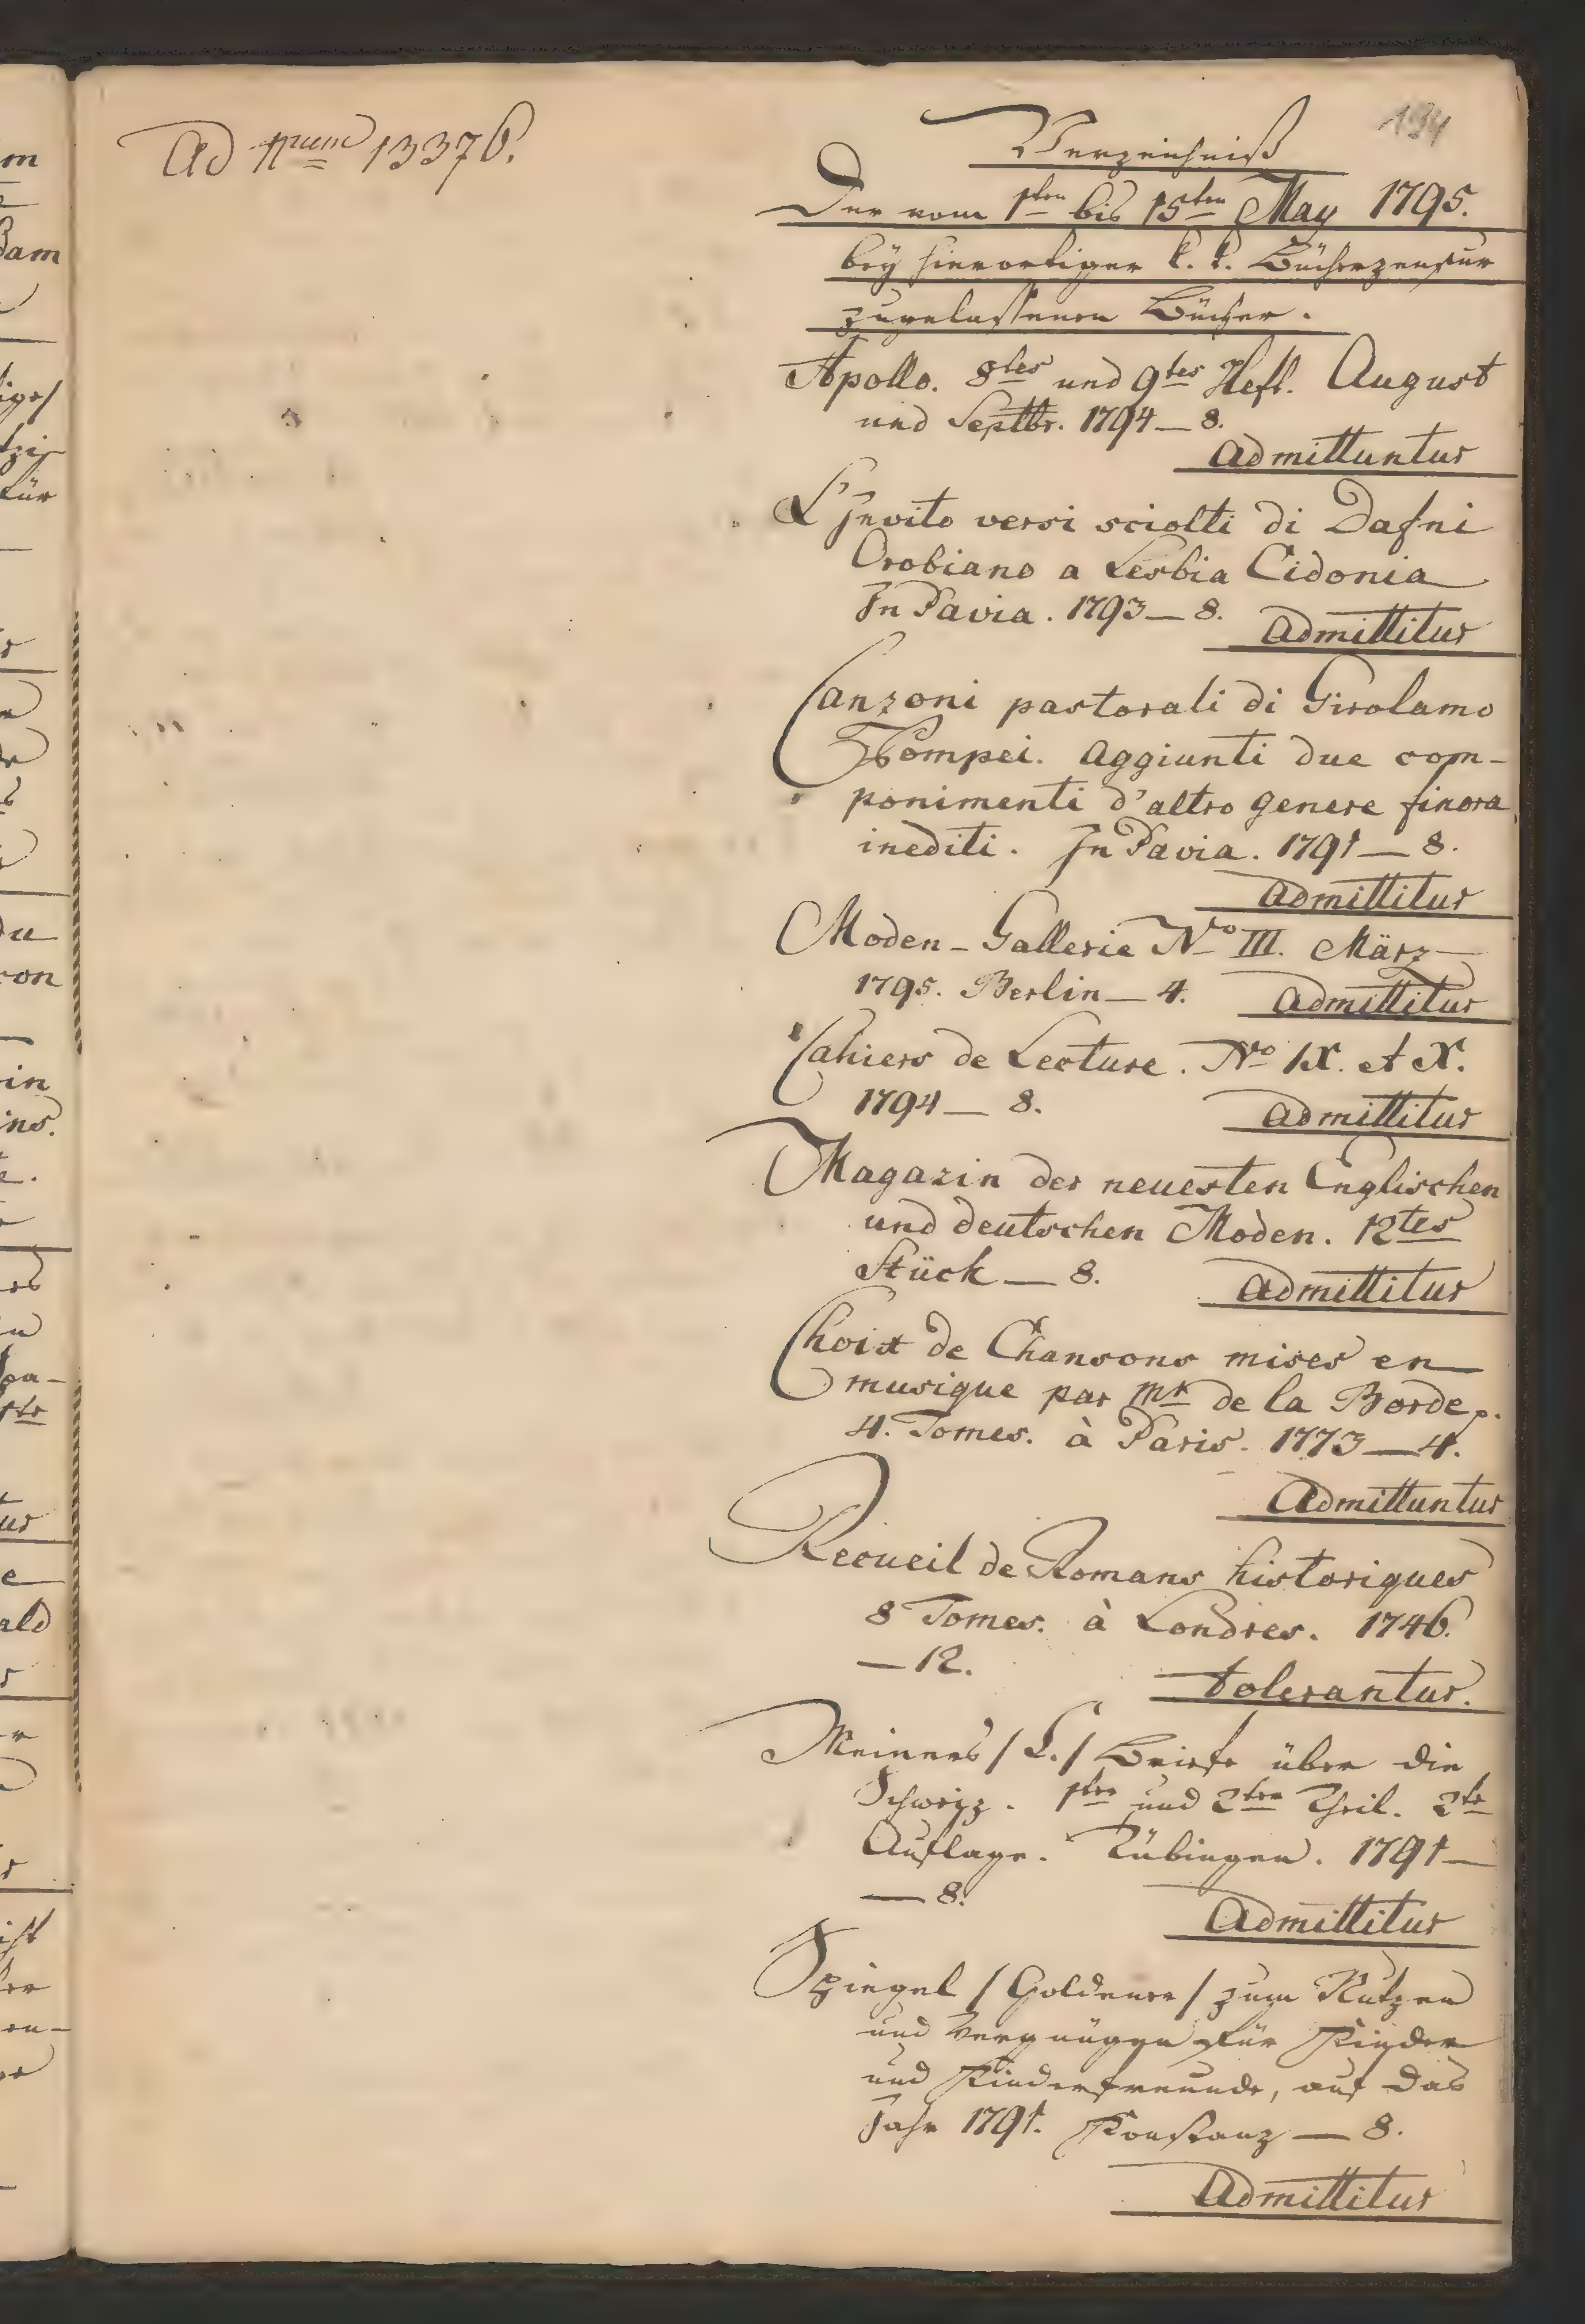 Ad Num 13376.
194
Verzeichniß
Der vom 1ten bis 15ten May 1795.
bey hierortiger k. k. Bücherzensur
zugelassenen Bücher.
Apollo. 8tes und 9tes Heft. August
und Septbr. 1794 — 8.
Admittuntur
L'Invito versi sciolti di Dafni
Orobiano a Lesbia Cidonia
In Pavia. 1793 — 8.
Admittitur
Canzoni pastorali di Girolamo
Pompei. Aggiunti due com-
ponimenti d'altro genere finora
inediti. In Pavia. 1791 — 8.
Admittitur
Moden-Gallerie No III. März
1795. Berlin — 4.
Admittitur
Cahiers de Lecture. No IX. et X.
1794 — 8.
Admittitur
Magazin der neuesten Englischen
und deutschen Moden. 12tes
Stück — 8.
Admittitur
Choix de Chansons mises en
musique par Mr de la Borde p.
4. Tomes. à Paris. 1773 — 4.
Admittuntur
Recueil de Romans historiques
8 Tomes. à Londres. 1746.
— 12.
tolerantur.
Meiners / C. / Briefe über die
Schweiz. 1ter und 2ter Theil. 2te
Auflage. Tübingen. 1791 —
— 8.
Admittitur
Spiegel / Goldener / zum Nutzen
und Vergnügen für Kinder
und Kinderfreunde, auf das
Jahr 1791. Konstanz — 8.
Admittitur